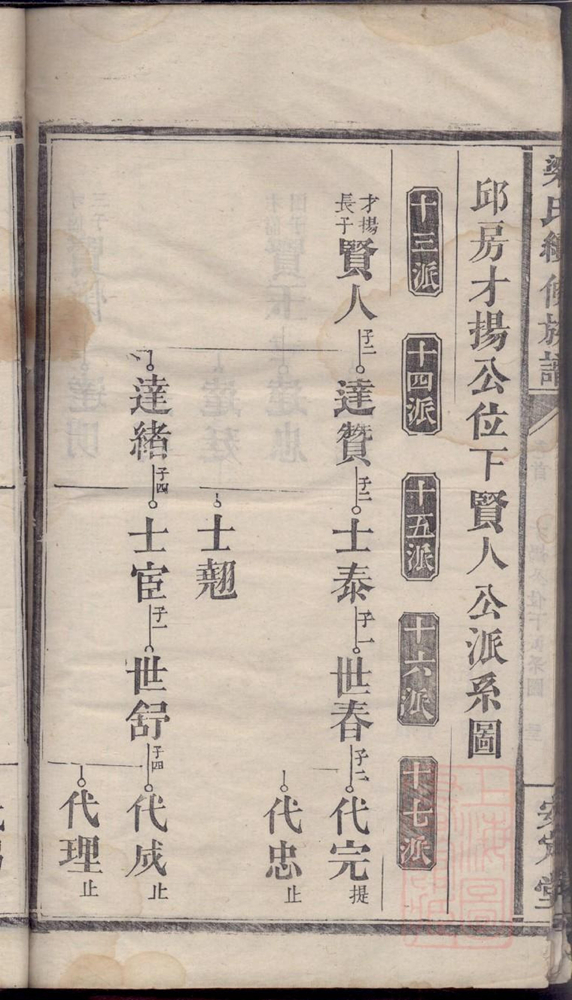 梁氏續修族譜
安定堂
邱房才揚公位下賢人公派系圖
十三派 十四派 十五派 十六派 十七派
才揚長子 賢人 子二 達贊 子二 士泰 子一 世春 子二 代完 提
代忠 止
士翹
達緒 子四 士宦 子一 世舒 子四 代成 止
代理 止